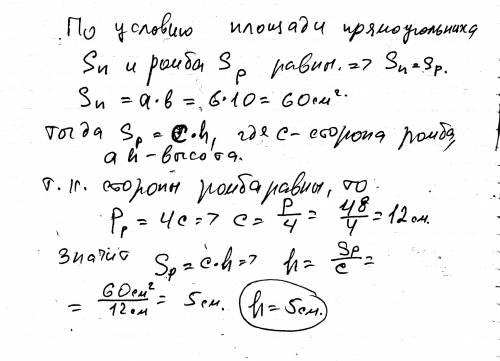 По условию площади прямоугольника
Sп и ромба Sр равны. => Sп = Sр.
Sп = a·в = 6·10 = 60 см².
тогда Sр = c·h, где c - сторона ромба,
а h - высота.
т.к. стороны ромба равны, то
Pр = 4c => c = P/4 = 48/4 = 12 см.
Значит Sр = c·h => h = Sр/c =
= 60 см²/12 см = 5 см. h = 5 см.